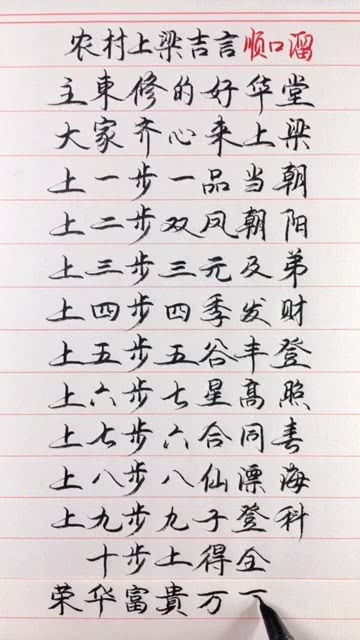 农村上梁吉言顺口溜
主東修的好华堂
大家齐心来上梁
上一步一品当朝
上二步双凤朝阳
上三步三元及第
上四步四季发财
上五步五谷丰登
上六步七星高照
上七步六合同春
上八步八仙漂海
上九步九子登科
十步上得全
荣华富貴万